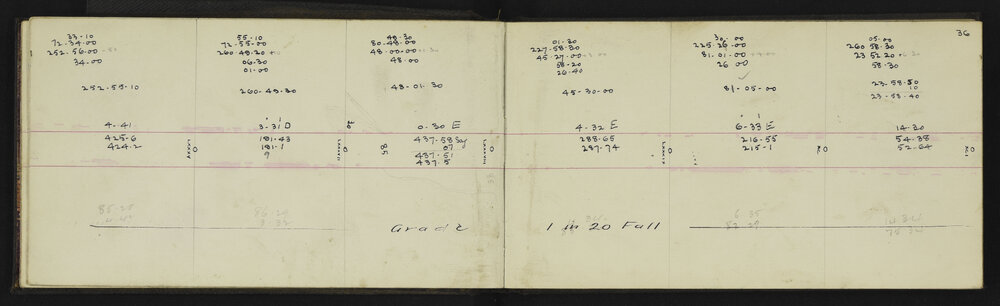 33-10
72-34-00
252-56-00
34-00
252-55-10
4-41
425-6
424-2
55-10
72-55-00
260-49-20
06-30
01-00
260-49-30
3-31 D
181-43
181-1
9
48-30
80-48-00
48-00-00
48-00
48-01-30
0-30 E
437-58
07
437-51
437-5
85
Grade
36
01-30
227-58-30
45-27-00
58-20
26-40
45-30-00
4-32 E
288-65
287-74
30-00
225-26-00
81-01-00
26 00
81-05-00
6-33 E
216-55
215-1
05-00
260 58-30
23 52 20
58-30
23-58-50
10
23-58-40
14-30
54-38
52-64
1 in 20 Fall
6 35
82 29
14 34